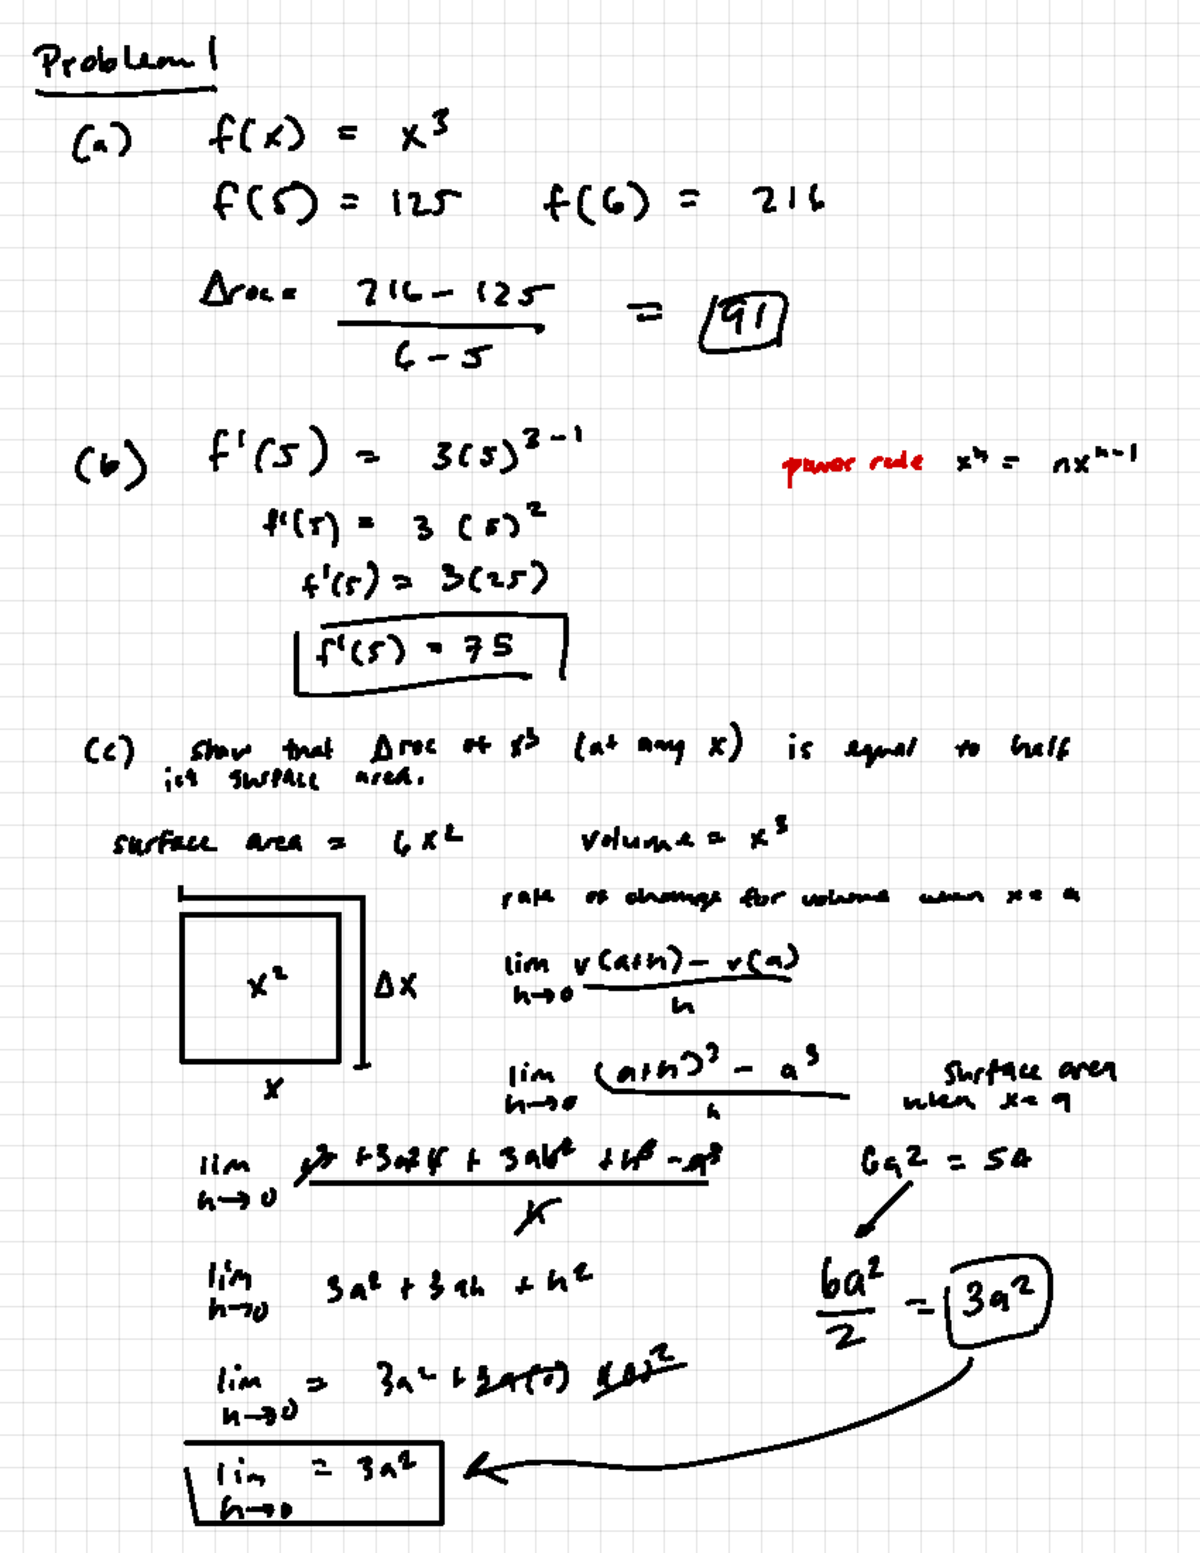 Problem 1
(a) f(x) = x³
f(5) = 125 f(6) = 216
Δroc = (216 - 125)/(6 - 5) = 91
(b) f'(5) = 3(5)³⁻¹ power rule xⁿ = nxⁿ⁻¹
f'(5) = 3 (5)²
f'(5) = 3(25)
f'(5) = 75
(c) show that Δroc of x³ (at any x) is equal to half
its surface area.
surface area = 6x² volume = x³
rate of change for volume when x = a
x² Δx
x
lim h→0 (v(a+h) - v(a))/h
lim h→0 ((a+h)³ - a³)/h
surface area
when x = a
lim h→0 (a³ + 3a²h + 3ah² + h³ - a³)/h
6a² = SA
lim h→0 3a² + 3ah + h²
6a²/2 = 3a²
lim h→0 = 3a² + 3a(0) + (0)²
lim h→0 = 3a²